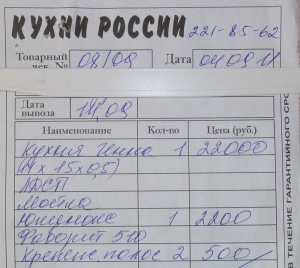 КУХНИ РОССИИ 221-85-62
Товарный чек № 08/09 Дата 04 09 11
Дата вывоза 14,09
Наименование Кол-во Цена (руб.)
Кухня Инна 1 22000
(4 x 15x0,5)
ЛДСП
Мойка
Юкинокс 1 2200
Фаворит 510
полос 2 500/
В ТЕЧЕНИЕ ГАРАНТИЙНОГО СРО